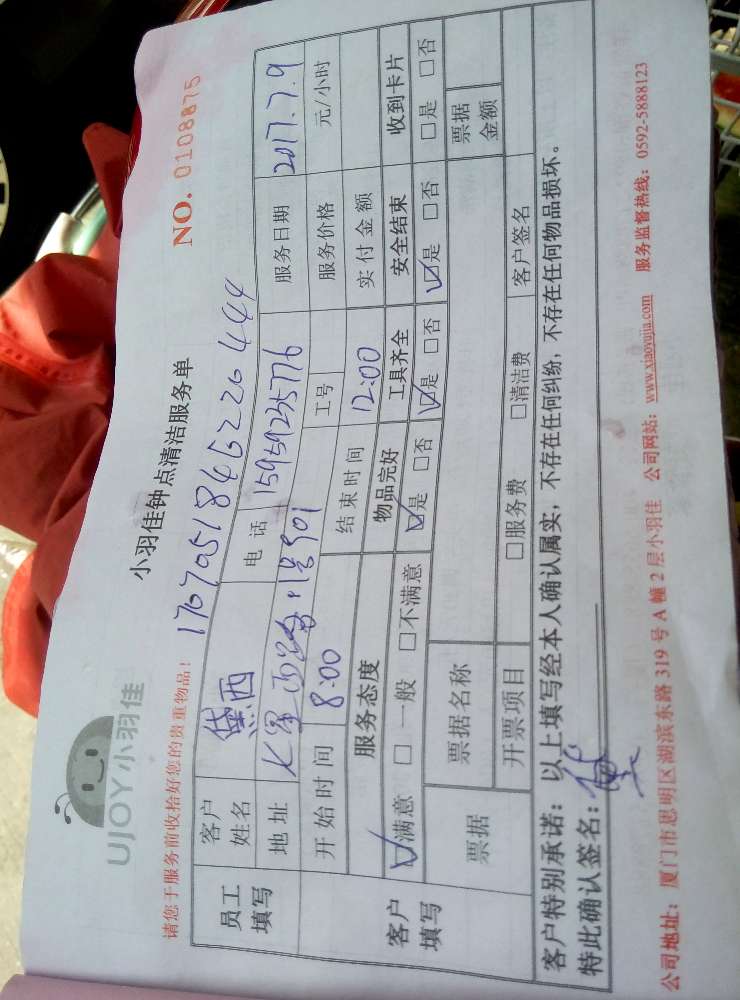 UJOY小羽佳
小羽佳钟点清洁服务单
NO. 0108875
请您于服务前收拾好您的贵重物品！
员工填写
客户姓名 黛西 电话 15959235776 服务日期 2017.7.9
地址 工号 服务价格 元/小时
开始时间 8:00 结束时间 12:00 实付金额
客户填写
服务态度 物品完好 工具齐全 安全结束 收到卡片
☑满意 □一般 □不满意 ☑是 □否 ☑是 □否 ☑是 □否 □是 □否
票据 票据名称 票据金额
开票项目 □服务费 □清洁费 客户签名
客户特别承诺：以上填写经本人确认属实，不存在任何纠纷，不存在任何物品损坏。
特此确认签名：
公司地址：厦门市思明区湖滨东路 319 号 A 幢 2 层小羽佳 公司网站：www.xiaoyujia.com 服务监督热线：0592-5888123